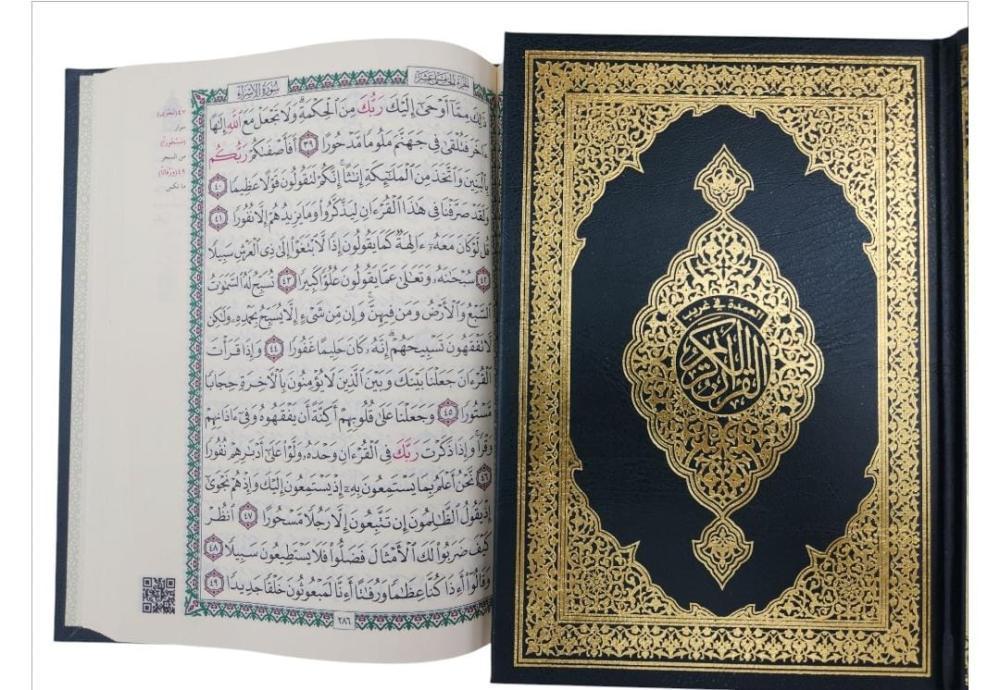 الجُزءُ الخَامِسَ عَشَرَ
سُورَةُ الإِسْرَاءِ
ذَٰلِكَ مِمَّآ أَوْحَىٰٓ إِلَيْكَ رَبُّكَ مِنَ ٱلْحِكْمَةِ ۗ وَلَا تَجْعَلْ مَعَ ٱللَّهِ إِلَٰهًا
ءَاخَرَ فَتُلْقَىٰ فِى جَهَنَّمَ مَلُومًا مَّدْحُورًا ٣٩ أَفَأَصْفَىٰكُمْ رَبُّكُم
بِٱلْبَنِينَ وَٱتَّخَذَ مِنَ ٱلْمَلَٰٓئِكَةِ إِنَٰثًا ۚ إِنَّكُمْ لَتَقُولُونَ قَوْلًا عَظِيمًا ٤٠
وَلَقَدْ صَرَّفْنَا فِى هَٰذَا ٱلْقُرْءَانِ لِيَذَّكَّرُوا۟ وَمَا يَزِيدُهُمْ إِلَّا نُفُورًا ٤١
قُل لَّوْ كَانَ مَعَهُۥٓ ءَالِهَةٌ كَمَا يَقُولُونَ إِذًا لَّٱبْتَغَوْا۟ إِلَىٰ ذِى ٱلْعَرْشِ سَبِيلًا
٤٢ سُبْحَٰنَهُۥ وَتَعَٰلَىٰ عَمَّا يَقُولُونَ عُلُوًّا كَبِيرًا ٤٣ تُسَبِّحُ لَهُ ٱلسَّمَٰوَٰتُ
ٱلسَّبْعُ وَٱلْأَرْضُ وَمَن فِيهِنَّ ۚ وَإِن مِّن شَىْءٍ إِلَّا يُسَبِّحُ بِحَمْدِهِۦ وَلَٰكِن
لَّا تَفْقَهُونَ تَسْبِيحَهُمْ ۗ إِنَّهُۥ كَانَ حَلِيمًا غَفُورًا ٤٤ وَإِذَا قَرَأْتَ
ٱلْقُرْءَانَ جَعَلْنَا بَيْنَكَ وَبَيْنَ ٱلَّذِينَ لَا يُؤْمِنُونَ بِٱلْءَاخِرَةِ حِجَابًا
مَّسْتُورًا ٤٥ وَجَعَلْنَا عَلَىٰ قُلُوبِهِمْ أَكِنَّةً أَن يَفْقَهُوهُ وَفِىٓ ءَاذَانِهِمْ
وَقْرًا ۚ وَإِذَا ذَكَرْتَ رَبَّكَ فِى ٱلْقُرْءَانِ وَحْدَهُۥ وَلَّوْا۟ عَلَىٰٓ أَدْبَٰرِهِمْ نُفُورًا
٤٦ نَّحْنُ أَعْلَمُ بِمَا يَسْتَمِعُونَ بِهِۦٓ إِذْ يَسْتَمِعُونَ إِلَيْكَ وَإِذْ هُمْ نَجْوَىٰٓ
إِذْ يَقُولُ ٱلظَّٰلِمُونَ إِن تَتَّبِعُونَ إِلَّا رَجُلًا مَّسْحُورًا ٤٧ ٱنظُرْ
كَيْفَ ضَرَبُوا۟ لَكَ ٱلْأَمْثَالَ فَضَلُّوا۟ فَلَا يَسْتَطِيعُونَ سَبِيلًا ٤٨
وَقَالُوٓا۟ أَءِذَا كُنَّا عِظَٰمًا وَرُفَٰتًا أَءِنَّا لَمَبْعُوثُونَ خَلْقًا جَدِيدًا ٤٩
٢٨٦
(مسحورا)
من السحر
٤٩(ورفاتا)
العمدة في غريب
القرآن الكريم